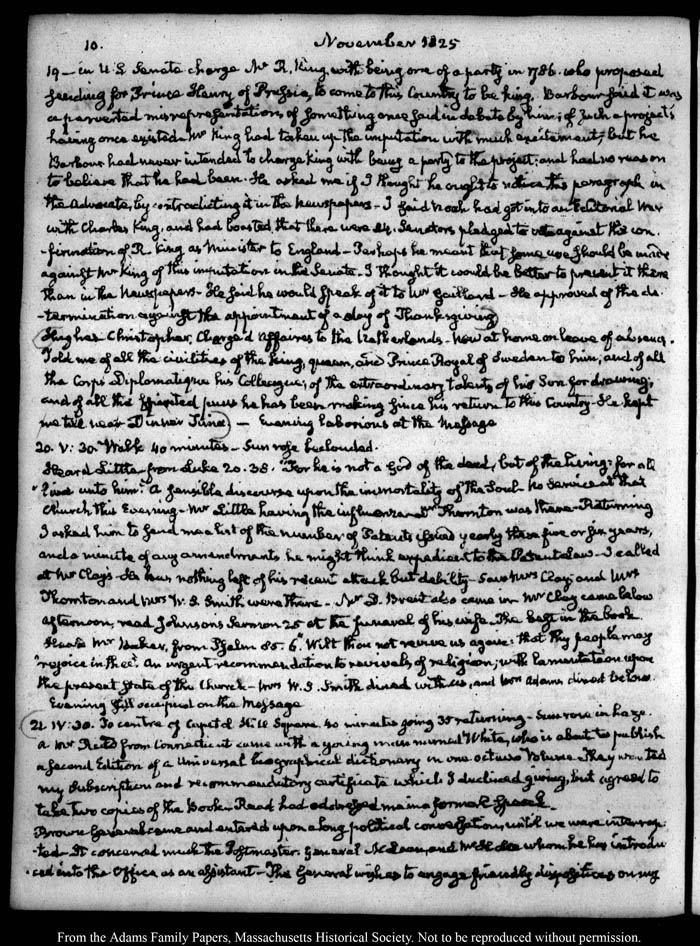 10. November 1825
19 – in U.S. Senate charge Mr R. King, with being one of a party in 1786. who proposed
sending for Prince Henry of Prussia, to come to this Country to be king. Barbour said it was
a perverted misrepresentation, of something once said in debate by him; of such a project's
having once existed – Mr King had taken up the imputation with much excitement; but he
Barbour had never intended to charge King with being a party to the project; and had no reason
to believe that he had been. He asked me if I thought he ought to notice this paragraph in
the Advocate, by contradicting it in the Newspapers – I said Noah had got into an Editorial War
with Charles King, and had boasted that there were 24. Senators pledged to vote against the con-
-firmation of R. King as Minister to England – Perhaps he meant that some use should be made
against Mr King of this imputation in the Senate. I thought it would be better to present it there
than in the Newspapers – He said he would speak of it to Mr Gaillard – He approved of the de-
-termination against the appointment of a day of Thanksgiving
Hughes Christopher, Chargé d'affaires to the Netherlands. Now at home on leave of absence.
Told me of all the civilities of the King, queen, and Prince Royal of Sweden to him; and of all
the Corps Diplomatique his Colleagues; of the extraordinary talents of his Son for drawing;
and of all the spirited he has been making since his return to this Country – He kept
me till near Dinner Time – Evening laborious at the Message
20. V: 30. Walk 40 minutes – Sun rose beclouded.
Heard Little from Luke 20. 38. "For he is not a God of the dead, but of the living: for all
"live unto him." A sensible discourse upon the immortality of the Soul – No service at that
Church this Evening – Mr Little having the influenza – Dr Thornton was there – Returning
I asked him to send me a list of the number of Patents issued yearly these five or six years,
and a minute of any amendments he might think expedient to the Patent Law – I called
at Mr Clay's – He has nothing left of his recent attack but debility – Saw Mrs Clay; and Mrs
Thornton and Mrs W. S. Smith were there – Mr D. Brent also came in Mr Clay came below
afternoon, read Johnson's Sermon 25 at the funeral of his wife. The last in the book
Heard Mr Baker, from Psalm 85. 6. "Wilt thou not revive us again: that thy people may
"rejoice in thee". An urgent recommendation to revivals of religion; with lamentation upon
the present State of the Church – Mrs W. S. Smith dined with us, and Wm Adams dined below.
Evening still occupied on the Message
21. IV: 30. To centre of Capitol Hill Square. 40 minutes going 35 returning – Sun rose in haze.
a Mr Reed from Connecticut came with a young man named White, who is about to publish
a second Edition of a Universal biographical dictionary in one octavo Volume. They wanted
my Subscription and recommendatory certificate which I declined giving, but agreed to
take two copies of the Book – Read had addressed me in a formal Speech
Brown General came and entered upon a long political conversation, until we were interrup-
-ted – It concerned much the Postmaster General McLean, and Mr whom he has introdu-
-ced into the Office as an assistant – The General wishes to engage friendly dispositions on my
From the Adams Family Papers, Massachusetts Historical Society. Not to be reproduced without permission.